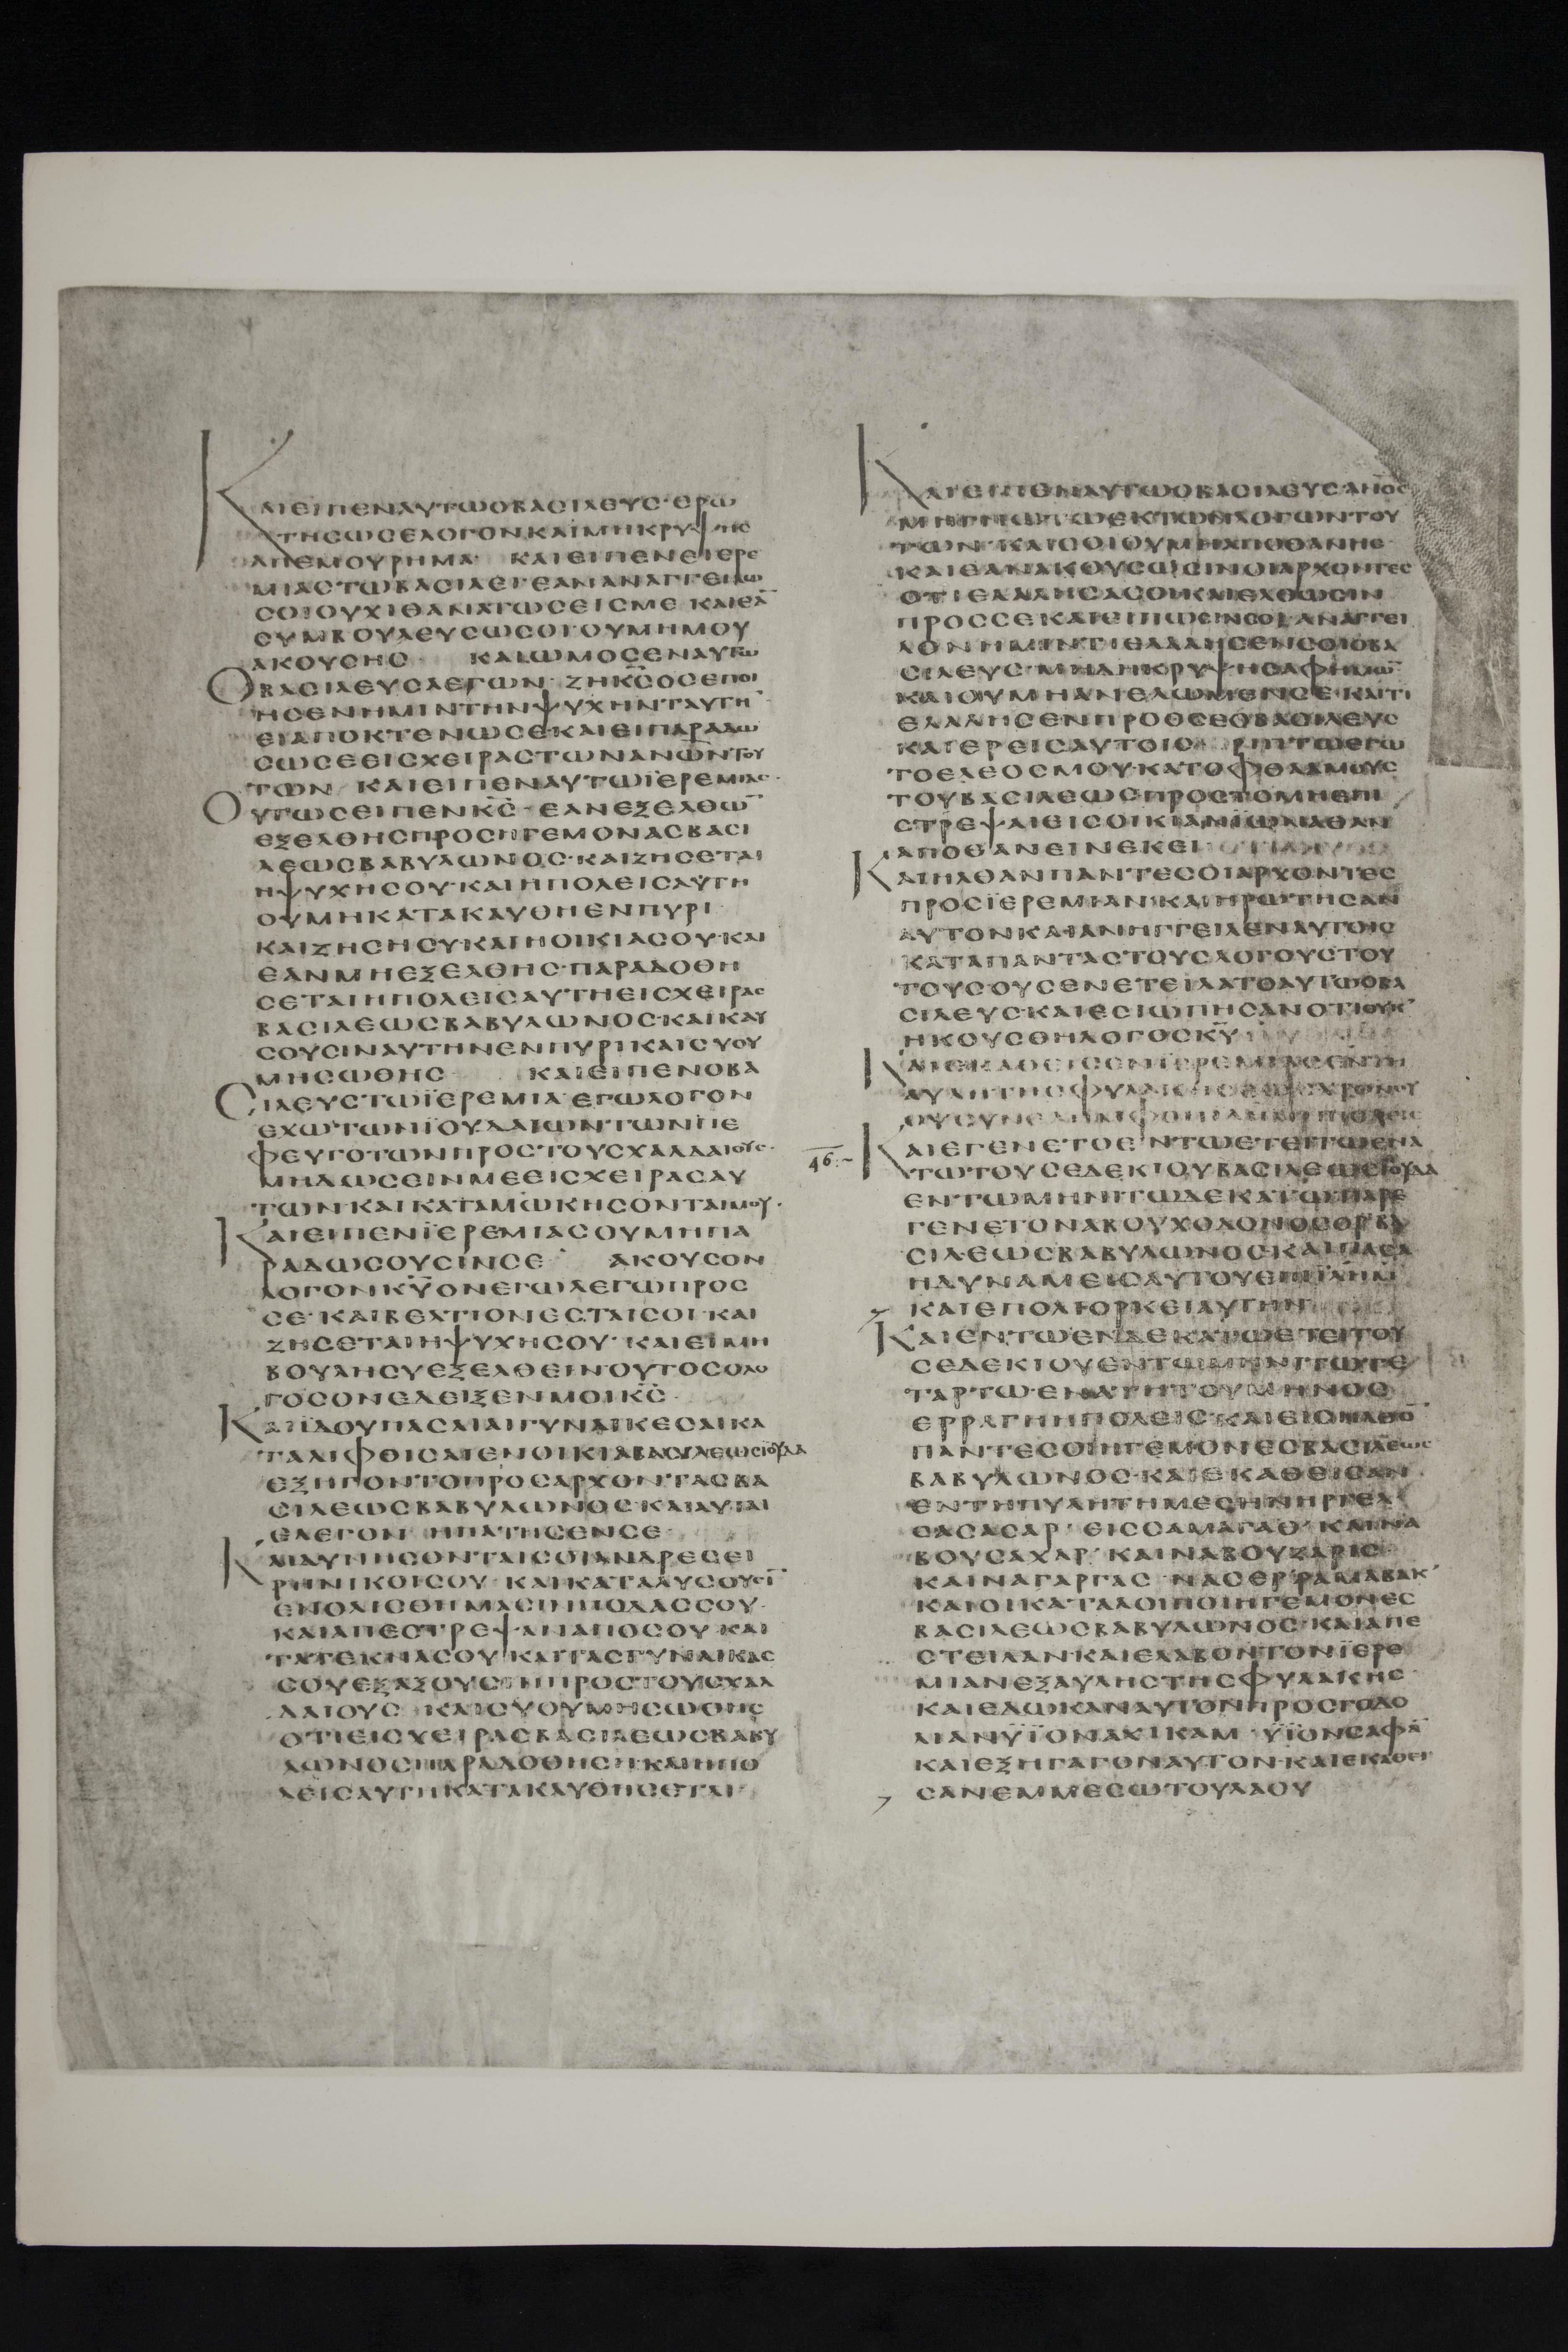 ΚΑΙΕΙΠΕΝΑΥΤΩΟΒΑCΙΛΕΥC·ΕΡΩ
ΤΗCΩCΕΛΟΓΟΝΚΑΙΜΗΚΡΥΨΗC
ΑΠΕΜΟΥΡΗΜΑ ΚΑΙΕΙΠΕΝΕΙΕΡΕ
ΜΙΑCΤΩΒΑCΙΛΕΙΕΑΝΑΝΑΓΓΕΙΛΩ
CΟΙΟΥΧΙΘΑΝΑΤΩCΕΙCΜΕ ΚΑΙΕΑ̅
CΥΜΒΟΥΛΕΥCΩCΟΙΟΥΜΗΜΟΥ
ΑΚΟΥCΗC ΚΑΙΩΜΟCΕΝΑΥΤΩ
ΟΒΑCΙΛΕΥCΛΕΓΩΝ·ΖΗΚ̅C̅ΟCΕΠΟΙ
ΗCΕΝΗΜΙΝΤΗΝΨΥΧΗΝΤΑΥΤΗ̅
ΕΙΑΠΟΚΤΕΝΩCΕΚΑΙΕΙΠΑΡΑΔΩ
CΩCΕΕΙCΧΕΙΡΑCΤΩΝΑΝΩ̅Ν̅ΤΟΥ
ΤΩΝ ΚΑΙΕΙΠΕΝΑΥΤΩΪΕΡΕΜΙΑC·
ΟΥΤΩCΕΙΠΕΝΚ̅C̅·ΕΑΝΕΞΕΛΘΩ̅
ΕΞΕΛΘΗCΠΡΟCΗΓΕΜΟΝΑCΒΑCΙ
ΛΕΩCΒΑΒΥΛΩΝΟC·ΚΑΙΖΗCΕΤΑΙ
ΗΨΥΧΗCΟΥ·ΚΑΙΗΠΟΛΕΙCΑΥΤΗ
ΟΥΜΗΚΑΤΑΚΑΥΘΗΕΝΠΥΡΙ
ΚΑΙΖΗCΗCΥΚΑΙΗΟΙΚΙΑCΟΥ·ΚΑΙ
ΕΑΝΜΗΕΞΕΛΘΗC·ΠΑΡΑΔΟΘΗ
CΕΤΑΙΗΠΟΛΕΙCΑΥΤΗΕΙCΧΕΙΡΑC
ΒΑCΙΛΕΩCΒΑΒΥΛΩΝΟC·ΚΑΙΚΑΥ
CΟΥCΙΝΑΥΤΗΝΕΝΠΥΡΙΚΑΙCΥΟΥ
ΜΗCΩΘΗC ΚΑΙΕΙΠΕΝΟΒΑ
CΙΛΕΥCΤΩΪΕΡΕΜΙΑΕΓΩΛΟΓΟΝ
ΕΧΩΤΩΝΪΟΥΔΑΙΩΝΤΩΝΠΕ
ΦΕΥΓΟΤΩΝΠΡΟCΤΟΥCΧΑΛΔΑΙΟΥC·
ΜΗΔΩCΕΙΝΜΕΕΙCΧΕΙΡΑCΑΥ
ΤΩΝΚΑΙΚΑΤΑΜΩΚΗCΟΝΤΑΙΜΟΥ·
ΚΑΙΕΙΠΕΝΪΕΡΕΜΙΑCΟΥΜΗΠΑ
ΡΑΔΩCΟΥCΙΝCΕ ΑΚΟΥCΟΝ
ΛΟΓΟΝΚ̅Υ̅ΟΝΕΓΩΛΕΓΩΠΡΟC
CΕ·ΚΑΙΒΕΛΤΙΟΝΕCΤΑΙCΟΙ·ΚΑΙ
ΖΗCΕΤΑΙΗΨΥΧΗCΟΥ·ΚΑΙΕΙΜΗ
ΒΟΥΛΗCΥΕΞΕΛΘΕΙΝΟΥΤΟCΟΛΟ
ΓΟCΟΝΕΔΕΙΞΕΝΜΟΙΚ̅C̅
ΚΑΙΪΔΟΥΠΑCΑΙΑΙΓΥΝΑΙΚΕCΑΙΚΑ
ΤΑΛΙΦΘΙCΑΙΕΝΟΙΚΙΑΒΑCΙΛΕΩCΪΟΥΔΑ
ΕΞΗΓΟΝΤΟΠΡΟCΑΡΧΟΝΤΑCΒΑ
CΙΛΕΩCΒΑΒΥΛΩΝΟC·ΚΑΙΑΥΤΑΙ
ΕΛΕΓΟΝ ΗΠΑΤΗCΕΝCΕ
ΚΑΙΔΥΝΗCΟΝΤΑΙCΟΙΑΝΔΡΕCΕΙ
ΡΗΝΙΚΟΙCΟΥ·ΚΑΙΚΑΤΑΛΥCΟΥCΙ̅
ΕΝΟΛΙCΘΗΜΑCΙΝΠΟΔΑCCΟΥ
ΚΑΙΑΠΕCΤΡΕΨΑΝΑΠΟCΟΥ·ΚΑΙ
ΤΑΤΕΚΝΑCΟΥΚΑΙΤΑCΓΥΝΑΙΚΑC
CΟΥΕΞΑΞΟΥCΙΝΠΡΟCΤΟΥCΧΑΛ
ΔΑΙΟΥC ΚΑΙCΥΟΥΜΗCΩΘΗC
ΟΤΙΕΙCΧΕΙΡΑCΒΑCΙΛΕΩCΒΑΒΥ
ΛΩΝΟCΠΑΡΑΔΟΘΗCΗ·ΚΑΙΗΠΟ
ΛΕΙCΑΥΤΗΚΑΤΑΚΑΥΘΗCΕΤΑΙ
ΚΑΙΕΙΠΕΝΑΥΤΩΟΒΑCΙΛΕΥC·ΑΝΟC
ΜΗΓΝΩΤΩΕΚΤΩΝΛΟΓΩΝΤΟΥ
ΤΩΝ·ΚΑΙCΟΙΟΥΜΗΑΠΟΘΑΝΗC
ΚΑΙΕΑΝΑΚΟΥCΩCΙΝΟΙΑΡΧΟΝΤΕC
ΟΤΙΕΛΑΛΗCΑCΟΙΚΑΙΕΛΘΩCΙΝ
ΠΡΟCCΕΚΑΙΕΙΠΩCΙΝCΟΙ·ΑΝΑΓΓΕΙ
ΛΟΝΗΜΙΝΤΙΕΛΑΛΗCΕΝCΟΙΟΒΑ
CΙΛΕΥC·ΜΗΔΗΚΡΥΨΗCΑΦΗΜΩ̅
ΚΑΙΟΥΜΗΑΝΕΛΩΜΕΝCΕ·ΚΑΙΤΙ
ΕΛΑΛΗCΕΝΠΡΟCCΕΟΒΑCΙΛΕΥC
ΚΑΙΕΡΕΙCΑΥΤΟΙC ΡΙΠΤΩΕΓΩ
ΤΟΕΛΕΟCΜΟΥ·ΚΑΤΟΦΘΑΛΜΟΥC
ΤΟΥΒΑCΙΛΕΩCΠΡΟCΤΟΜΗΕΠΙ
CΤΡΕΨΑΙΕΙCΟΙΚΙΑΝΪΩΝΑΘΑΝ
ΑΠΟΘΑΝΕΙΝΕΚΕΙ
ΚΑΙΗΛΘΑΝΠΑΝΤΕCΟΙΑΡΧΟΝΤΕC
ΠΡΟCΪΕΡΕΜΙΑΝ·ΚΑΙΗΡΩΤΗCΑΝ
ΑΥΤΟΝΚΑΙΑΝΗΓΓΕΙΛΕΝΑΥΤΟΙC
ΚΑΤΑΠΑΝΤΑCΤΟΥCΛΟΓΟΥCΤΟΥ
ΤΟΥCΟΥCΕΝΕΤΕΙΛΑΤΟΑΥΤΩΟΒΑ
CΙΛΕΥC·ΚΑΙΕCΙΩΠΗCΑΝΟΤΙΟΥΚ
ΗΚΟΥCΘΗΛΟΓΟCΚ̅Υ̅
ΚΑΙΕΚΑΘΕΙCΕΝΪΕΡΕΜΙΑCΕΝΤΗ
ΑΥΛΗΤΗCΦΥΛΑΚΗCΕΩCΧΡΟΝΟΥ
ΟΥCΥΝΕΛΗΜΦΘΗ
46
ΚΑΙΕΓΕΝΕΤΟΕΝΤΩΕΤΕΙΤΩΕΝΑ
ΤΩΤΟΥCΕΔΕΚΙΟΥΒΑCΙΛΕΩCΪΟΥΔΑ
ΕΝΤΩΜΗΝΙΤΩΔΕΚΑΤΩΠΑΡΕ
ΓΕΝΕΤΟΝΑΒΟΥΧΟΔΟΝΟCΟΡΒΑ
CΙΛΕΩCΒΑΒΥΛΩΝΟC·ΚΑΙΠΑCΑ
ΗΔΥΝΑΜΕΙCΑΥΤΟΥΕΠΙΪΛΗΜ
ΚΑΙΕΠΟΛΙΟΡΚΕΙΑΥΤΗΝ
ΚΑΙΕΝΤΩΕΝΔΕΚΑΤΩΕΤΕΙΤΟΥ
CΕΔΕΚΙΟΥΕΝΤΩΜΗΝΙΤΩΤΕ
ΤΑΡΤΩ·ΕΝΑΤΗΤΟΥΜΗΝΟC
ΕΡΡΑΓΗΗΠΟΛΕΙC·ΚΑΙΕΙCΗΛΘΟ̅
ΠΑΝΤΕCΟΙΗΓΕΜΟΝΕCΒΑCΙΛΕΩC
ΒΑΒΥΛΩΝΟC·ΚΑΙΕΚΑΘΕΙCΑΝ
ΕΝΤΗΠΥΛΗΤΗΜΕCΗΝΗΡΓΕΛ
CΑCΑCΑΡ·ΕΙCCΑΜΑΓΑΘ·ΚΑΙΝΑ
ΒΟΥCΑΧΑΡ·ΚΑΙΝΑΒΟΥΖΑΡΙC
ΚΑΙΝΑΓΑΡΓΑC·ΝΑCΕΡΡΑΒΑΜΑΚ
ΚΑΙΟΙΚΑΤΑΛΟΙΠΟΙΗΓΕΜΟΝΕC
ΒΑCΙΛΕΩCΒΑΒΥΛΩΝΟC·ΚΑΙΑΠΕ
CΤΕΙΛΑΝΚΑΙΕΛΑΒΟΝΤΟΝΪΕΡΕ
ΜΙΑΝΕΞΑΥΛΗCΤΗCΦΥΛΑΚΗC
ΚΑΙΕΔΩΚΑΝΑΥΤΟΝΠΡΟCΓΟΔΟ
ΛΙΑΝΫΪΟΝΑΧΙΚΑΜ ΫΪΟΝCΑΦΑ̅
ΚΑΙΕΞΗΓΑΓΟΝΑΥΤΟΝ·ΚΑΙΕΚΑΘΕΙ
CΑΝΕΜΜΕCΩΤΟΥΛΑΟΥ